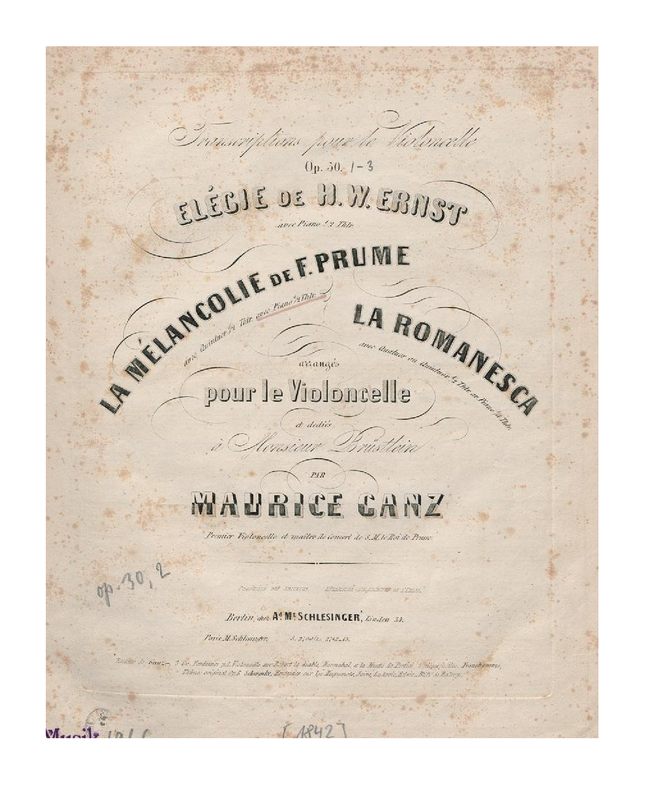 Transcriptions pour le Violoncelle
Op. 30. 1-3
ELÉGIE DE H. W. ERNST
avec Piano ½ Thlr.
LA MÉLANCOLIE DE F. PRUME
avec Quintuor Thlr. avec Piano ½ Thlr.
LA ROMANESCA
avec Quatuor ou Quintuor ½ Thlr. ou Piano Thlr.
arrangés
pour le Violoncelle
et dediés
à Monsieur Brüstlein
PAR
MAURICE GANZ
Premier Violoncelle et maître de Concert de S. M. le Roi de Prusse
op. 30, 2
Berlin, chez Ad. Mt. SCHLESINGER, Linden 34.
Paris, M. Schlesinger.
Musik
[1842]